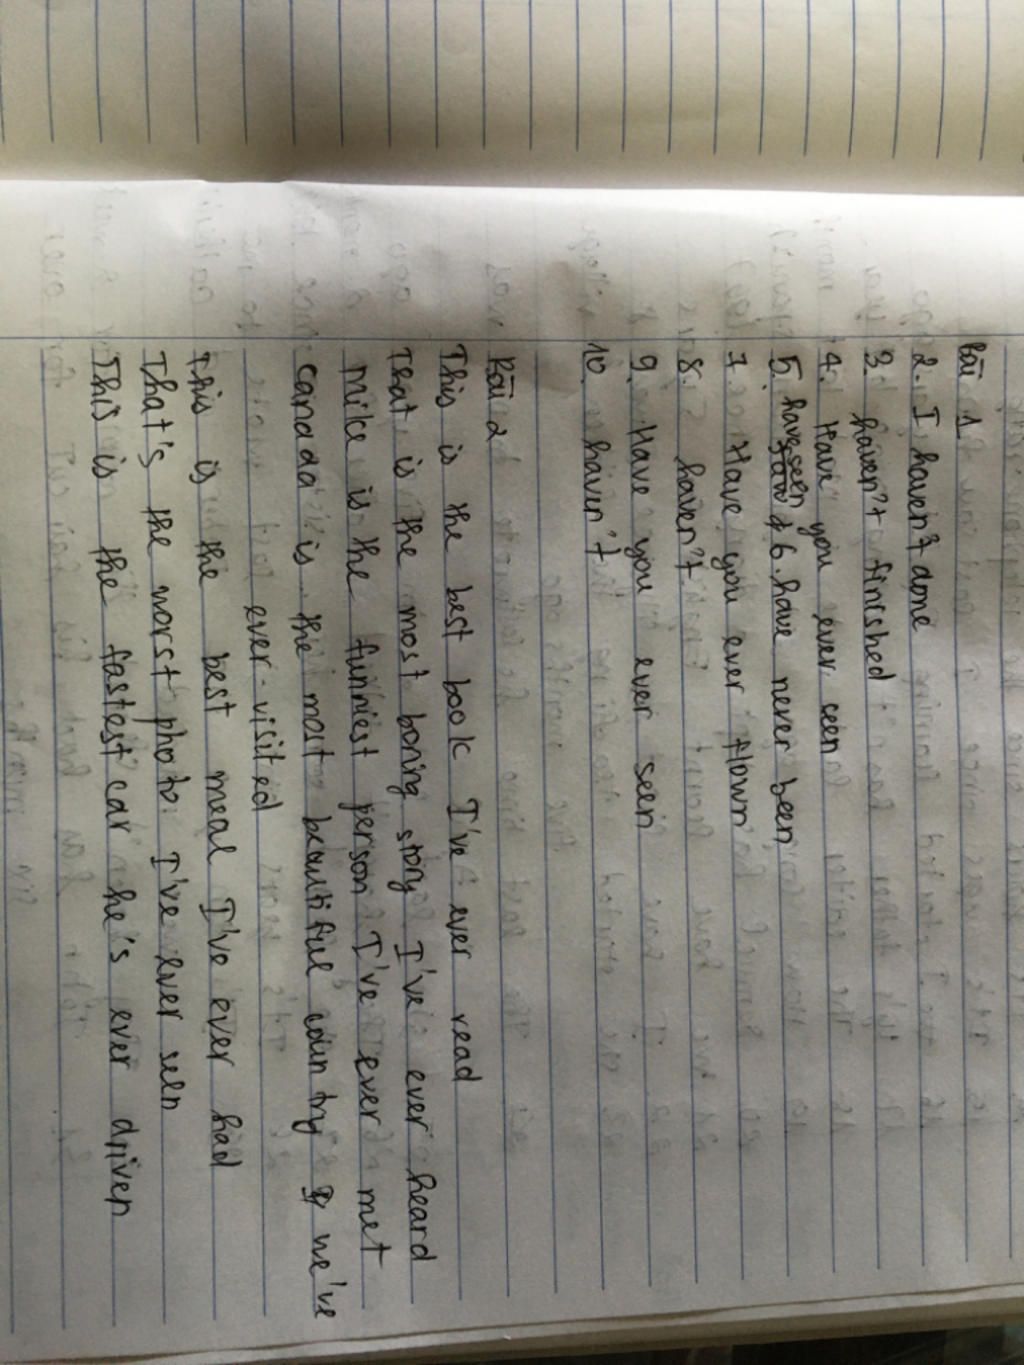 Bài 1
2. I haven't done
3. haven't finished
4. Have you ever seen
5. have seen 6. have never been
7. Have you ever flown
8. haven't
9. Have you ever seen
10. haven't
Bài 2
This is the best book I've ever read
That is the most boring story I've ever heard
Mike is the funniest person I've ever met
Canada is the most beautiful country we've
ever visited
This is the best meal I've ever had
That's the worst photo I've ever seen
This is the fastest car he's ever driven